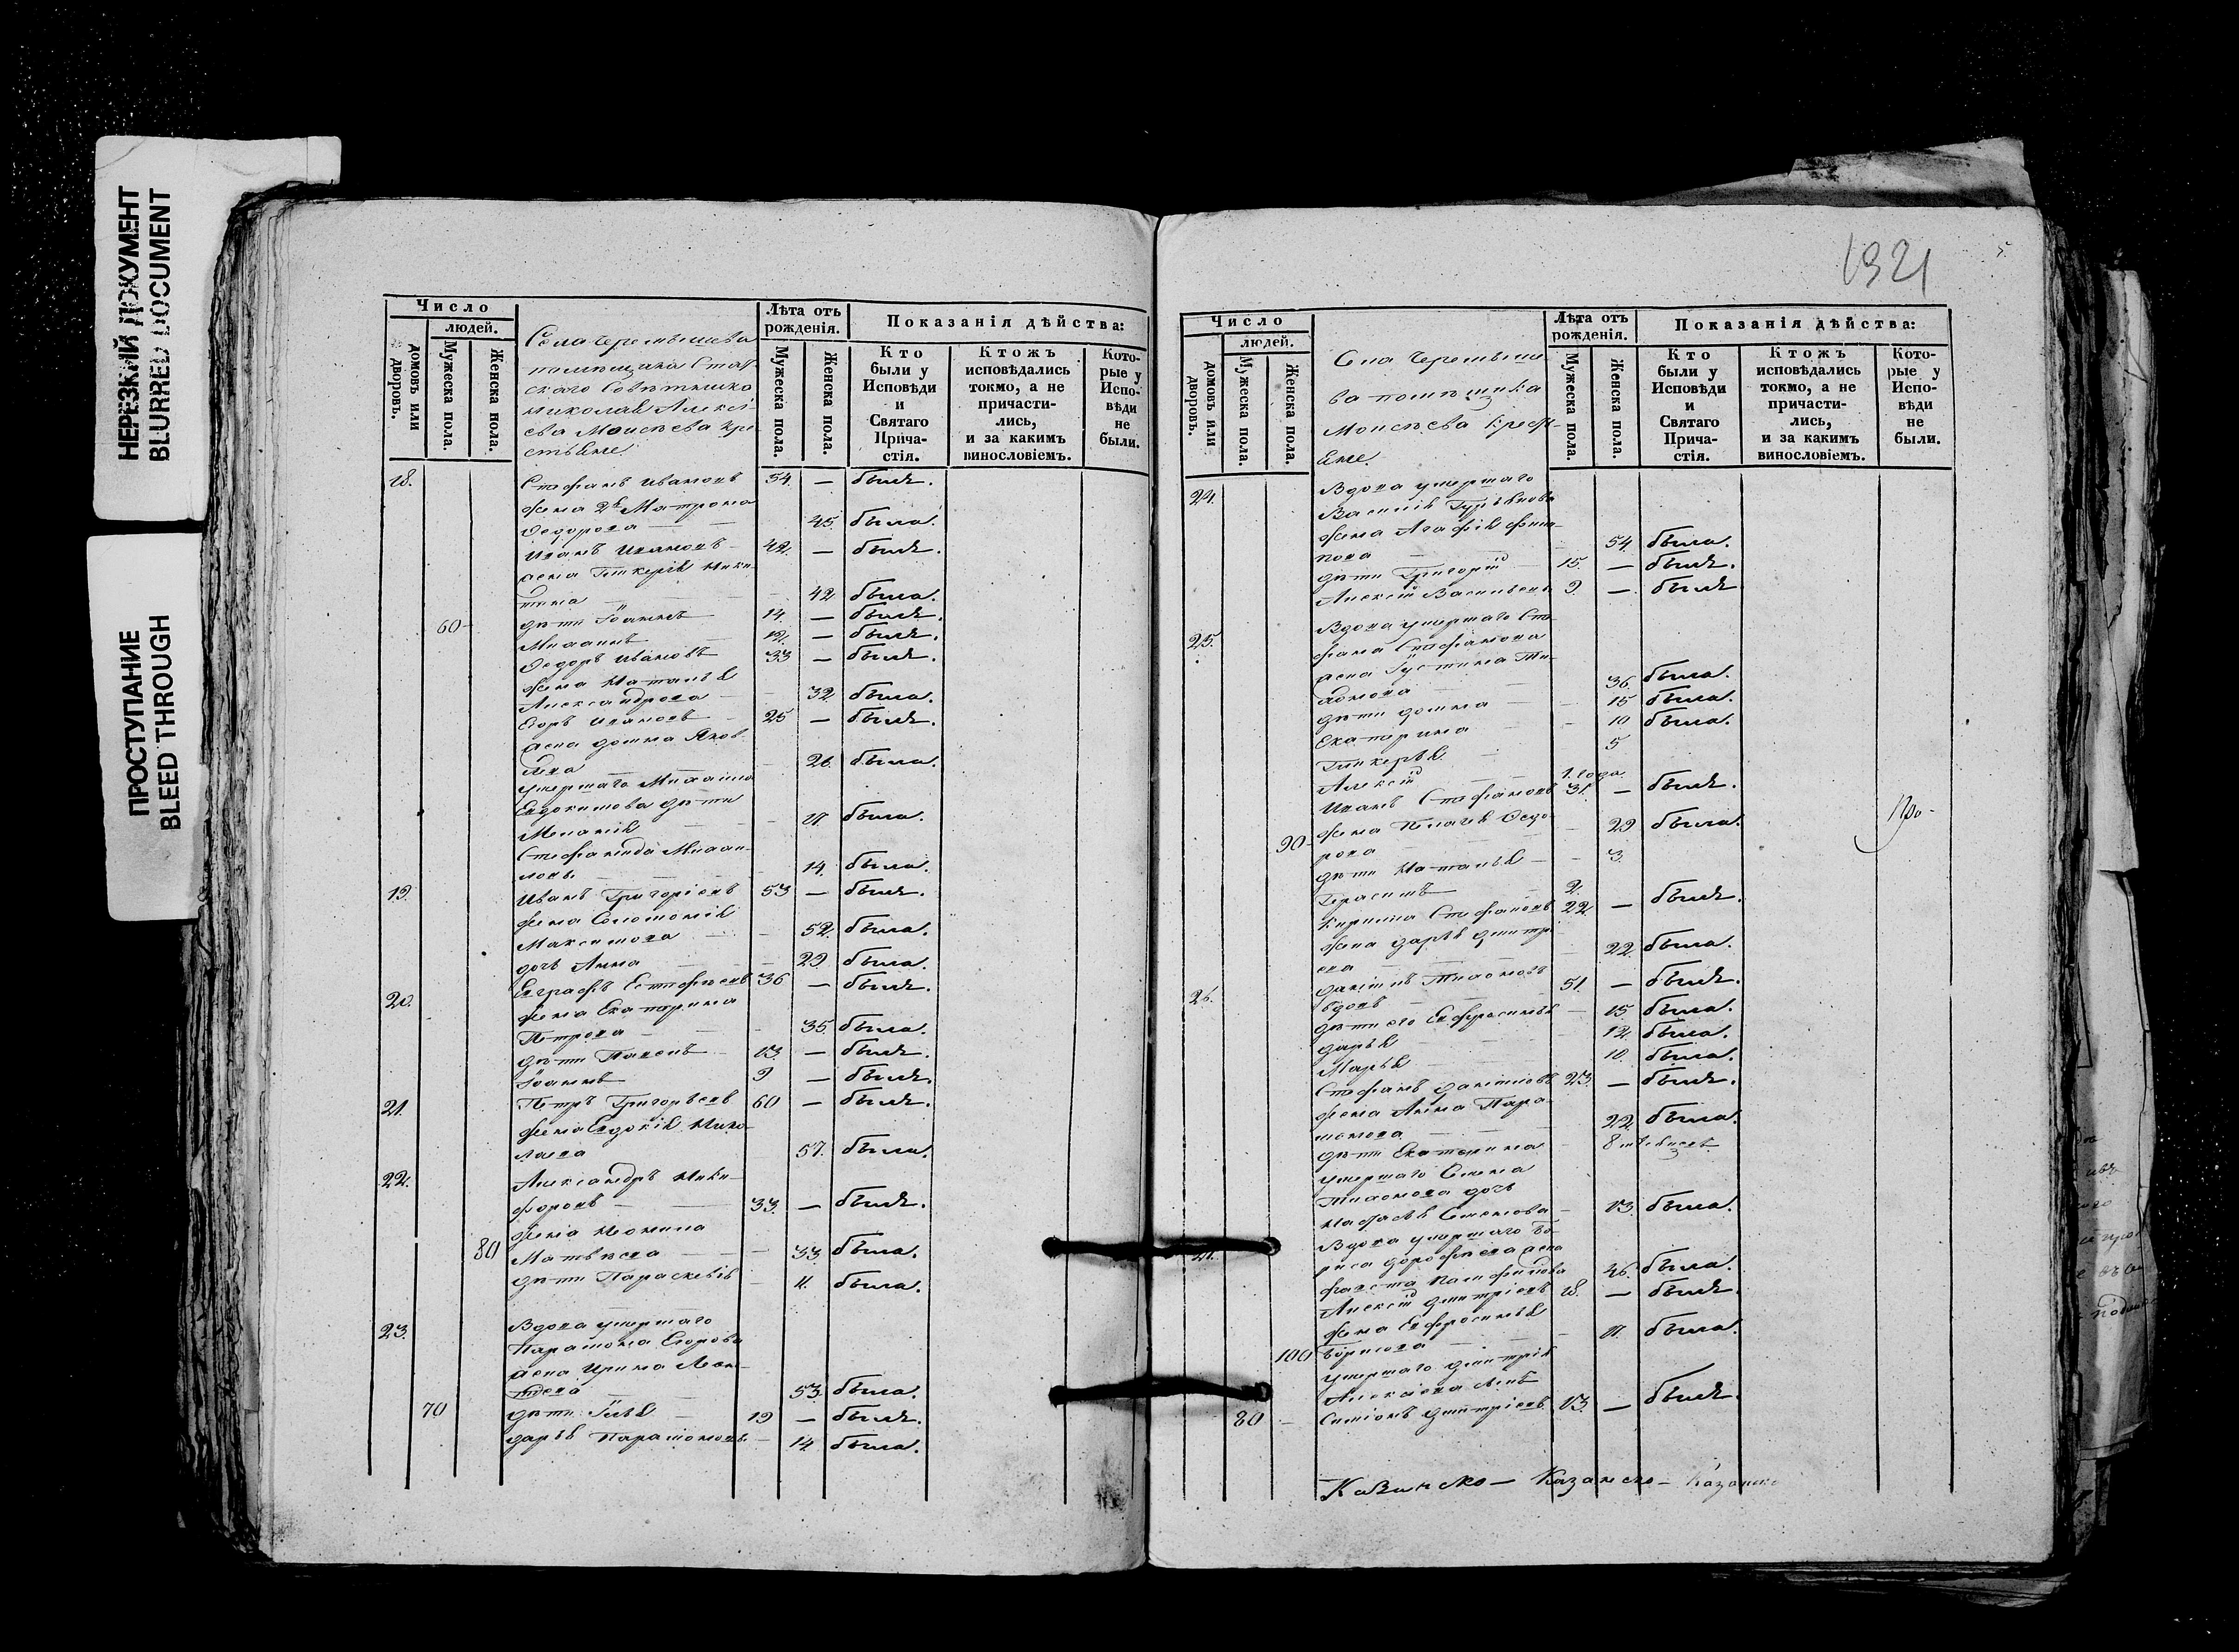 НЕРЕЗКИЙ ДОКУМЕНТ
BLURRED DOCUMENT
ПРОСТУПАНИЕ
BLEED THROUGH
Число
людей.
домовъ или дворовъ.
Мужеска пола.
Женска пола.
Села Черемышева
помѣщика Стат-
скаго Совѣтника
Николая Алексѣ
ева Моисѣева кре
стьяне.
Лѣта отъ рожденія.
Мужеска пола.
Женска пола.
Показанія дѣйства:
Кто были у Исповѣди и Святаго Прича-стія.
Ктожъ исповѣдались токмо, а не причасти-лись, и за какимъ винословіемъ.
Кото-рые у Испо-вѣди не были.
18. Стефанъ Ивановъ 54. — былъ.
жена 2я Матрона
Ѳедорова — 45. была.
Иванъ Ивановъ 42. — былъ.
жена Гликерія Ники
тина — 42 была.
60 дѣти Іоаннъ 14. — былъ.
12. — былъ.
Ѳедоръ Ивановъ 33 — былъ.
жена Наталья
Александрова — 32 была.
Егоръ Ивановъ 25 — былъ.
жена Домна Яков
лева — 26. была.
умершаго Михаила
Евдокимова дѣти
Меланія — 17. была.
Стефанида
14. была.
19. Иванъ Григорьевъ 53 — былъ.
жена Соломонія
Максимова — 52. была.
дочь Анна — 29. была.
20. Евграфъ 36 — былъ.
жена Екатерина
Петрова — 35. была.
дѣти Павелъ 13. — былъ.
Іоаннъ 9 — былъ.
21. Петръ Григорьевъ 60 — былъ.
жена Евдокія Нико
лаева 57. была.
22. Александръ Ники
форовъ — 33. — былъ.
жена Неонила
80 Матвѣева — 33. была.
дѣти Параскевія — 11. была.
23. Вдова умершаго
Парамона Егорова
жена Ирина Леон
тьева — 53. была.
70 дѣти Илья — 19 — былъ.
Дарья Парамонова — 14. была.
1321
Число
людей.
домовъ или дворовъ.
Мужеска пола.
Женска пола.
Села Черемыше
ва помѣщика
Моисѣева кресть
яне.
Лѣта отъ рожденія.
Мужеска пола.
Женска пола.
Показанія дѣйства:
Кто были у Исповѣди и Святаго Прича-стія.
Ктожъ исповѣдались токмо, а не причасти-лись, и за какимъ винословіемъ.
Кото-рые у Испо-вѣди не были.
24. Вдова умершаго
Василія
жена Агафія Филип
пова — 54. была.
дѣти Григорій 15. — былъ.
Алексій Васильевы 9 — былъ
25. Вдова умершаго Сте
фана Стефанова
жена Іустина Ти
36. была.
дѣти Домна — 15 была.
Екатерина — 10 была.
Гликерія — 5
Алексій — 1. года
Иванъ Стефановъ 31. — былъ.
жена Пелагея Ѳедо
90 рова — 29 была.
дѣти Наталья — 3.
Герасимъ 2.
Кирилла Стефановъ 22 — былъ.
жена Дарья Дмитрі
ева — 22. была.
26. Даніилъ
вдовъ — 51. — былъ.
дѣти его Евфросинья — 15 была.
Дарья — 12. была.
Марья — 10. была.
Стефанъ Даниловъ 23. — былъ.
жена Анна Пара
монова — 22 была.
дѣти Екатерина — 8
умершаго Семена
дочь
Семенова — 13. была.
27. Вдова умершаго Бо
риса Дорофѣева жена
46. была.
Алексій Дмитріевъ 18. — былъ.
жена Евфросинья
100 Борисова — 17. была.
умершаго Дмитрія
Алексѣева сынъ
80 — Симеонъ Дмитріевъ 13. — былъ.
Про-
Казанско — Казанско — Казанско